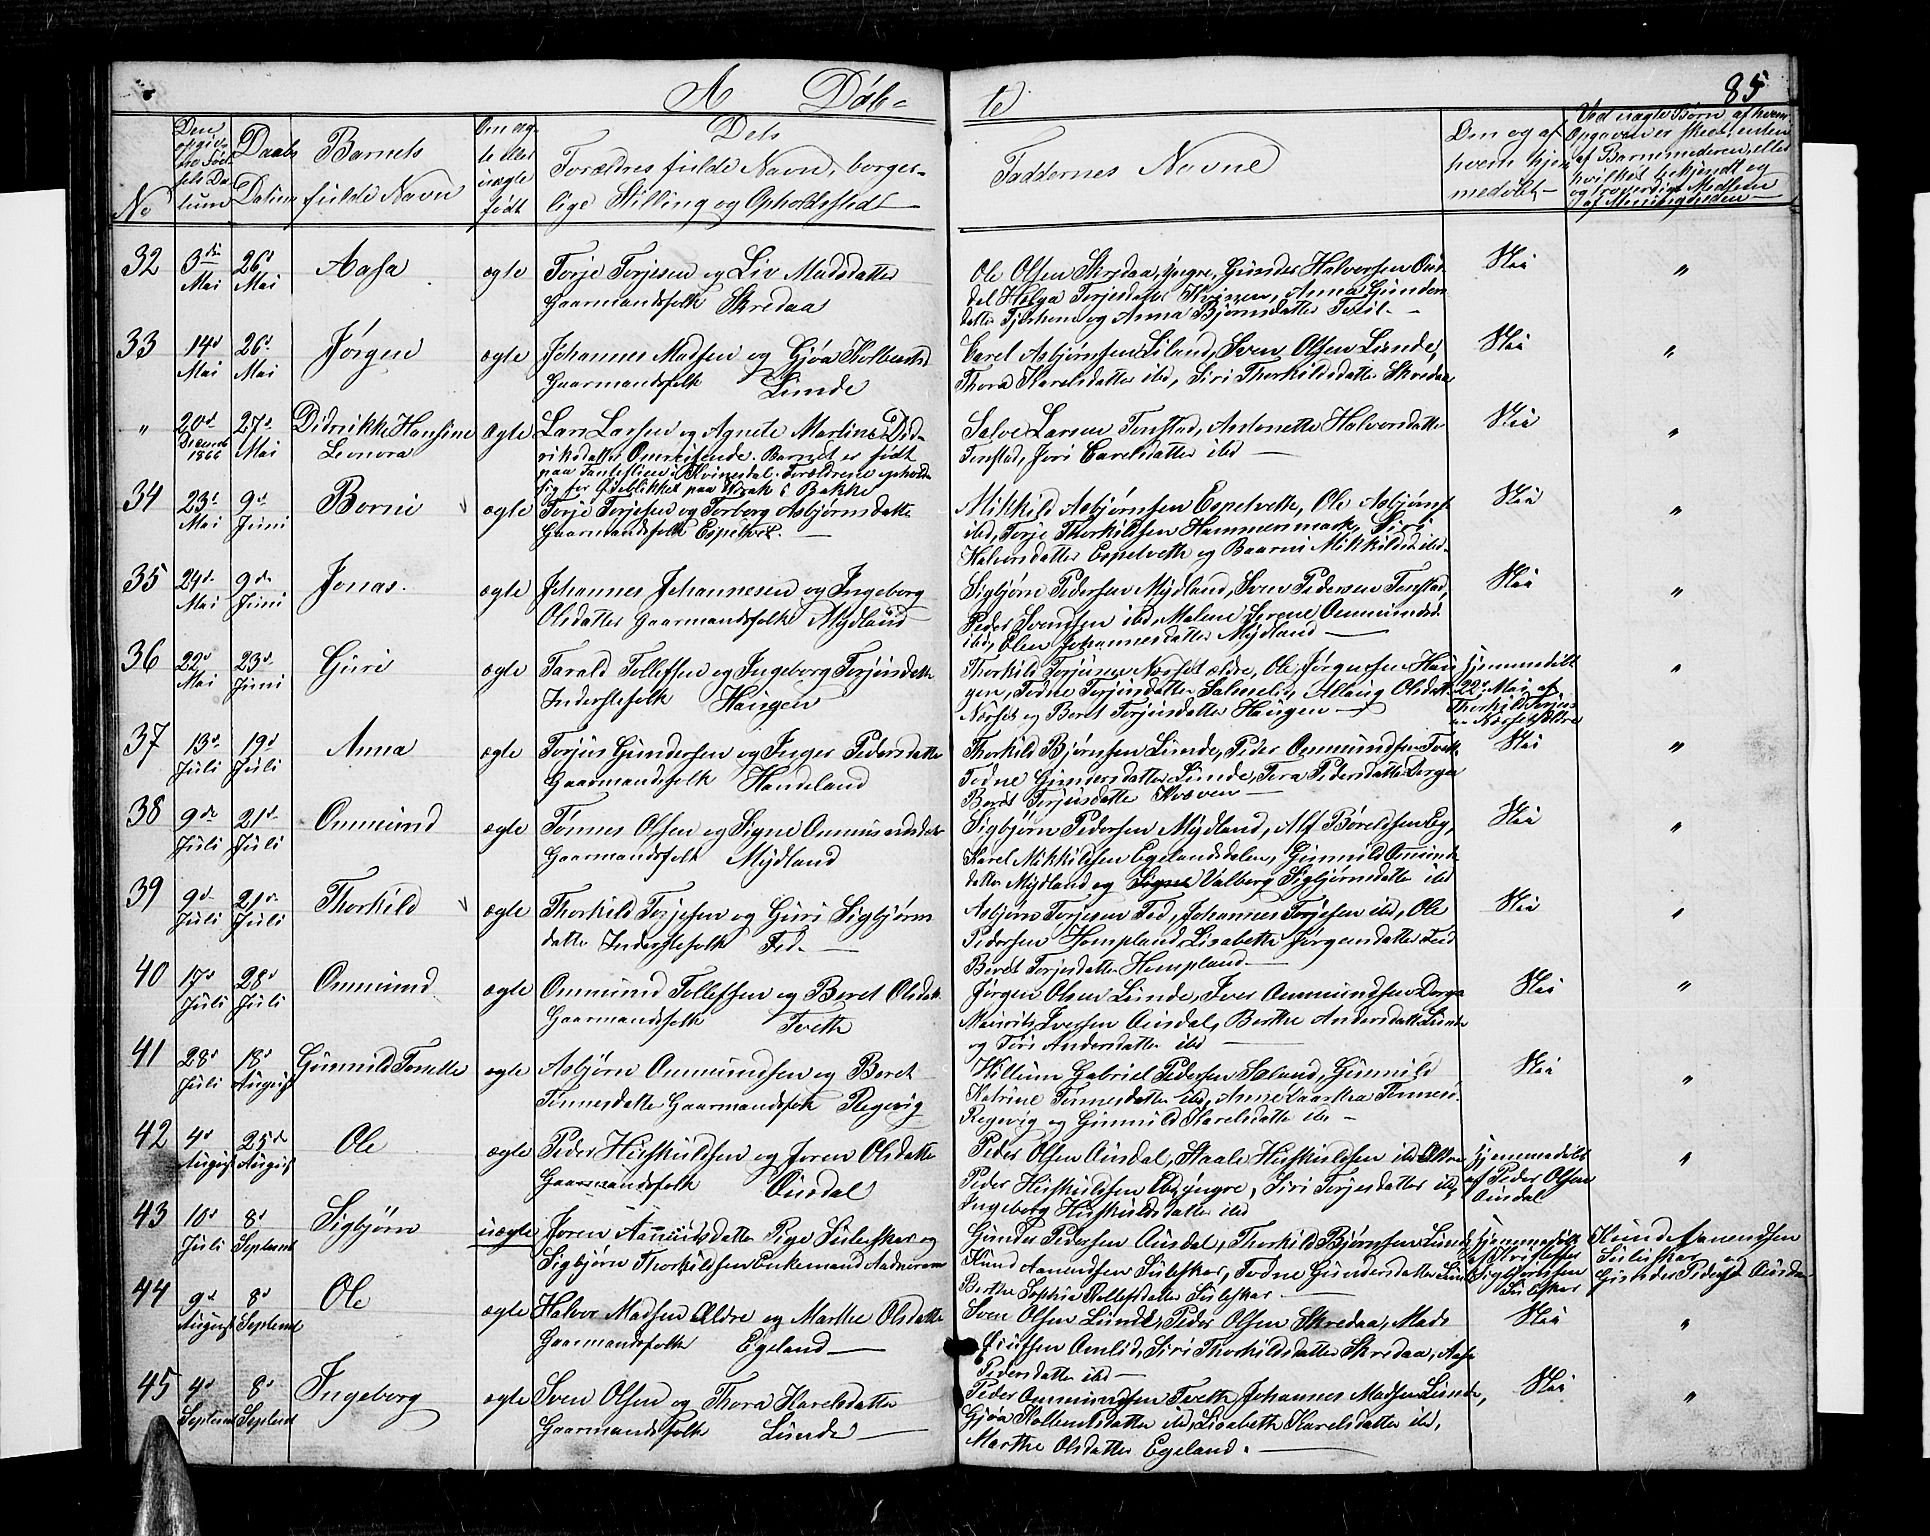 A Døb-
te
85
No
Den
opgivne
Fød-
sels Da-
tum
Daabs
Datum
Barnets
fulde Navn
Om æg-
te eller
uægte
født
Dets
Forældres fulde Navn, borger-
lige Stilling og Opholdssted
Faddernes Navne
Om og af
hvem hjem-
medøbt
Ved uægte Børn af hvem
Opgaven er skeet, enten
af Barnemoderen, eller
hvilket bekjendt og
og troværdigt Medlem
af Menigheden
32
3die
Mai
26d
Mai
Aasa
ægte
Torje Torjesen og Liv Madsdatter
Gaarmandsfolk Skredaa
Ole Olsen Skredaa, yngre, Gunder Halvorsen Ous-
dal Helga Torjesdatter Kvinen, Anna Gunders-
datter Tjørhom og Anna Bjørnsdatter
Nei
"
33
14d
Mai
26d
Mai
Jørgen
ægte
Johannes Madsen og Gjøa Kolbentsd
Gaarmandsfolk Lunde
Carel Asbjørnsen Liland, Sven Olsen Lunde,
Thora Karelsdatter ibd, Siri Thorkildsdatter Skredaa
Nei
"
"
20d
Decemb
1866
27d
Mai
Didrikke Hansine
Leonora
Ægte
Lars Larsen og Agnete Martine Did-
riksdatter Omreisende. Barnet er født
paa i Kvinesdal. Forældrene ophold
sig for Øieblikket paa i Bakke
Salve Larsen Tonstad, Antonette Halvorsdatter
Tonstad, Jori Carelsdatter ibd
Nei
"
34
23d
Mai
9d
Juni
Borni
ægte
Torje Torjesen og Torborg Asbjørnsdatte
Gaarmandsfolk Espetvet.
Mikkild Asbjørnsen Espetveth, Ole Asbjørns
ibd, Torje Thorkildsen Hammermark, Siri
Halvorsdatter Espetveth og Baarni Mikkildsd ibd
Nei
"
35
24d
Mai
9de
Juni
Jonas.
ægte
Johannes Johannesen og Ingeborg
Olsdatter Gaarmandsfolk Mydland
Sigbjørn Pedersen Mydland, Sven Pedersen Tonstad,
Peder Svensen ibd, Malene Serene Ommundsd
ibd, Olen Johannesdatter Mydland
Nei
"
36
22d
Mai
23d
Juni
Guri
ægte
Tarald Tollefsen og Ingeborg Torjusdatte
Inderstefolk Haugen
Thorkild Torjusen Nærset ældre, Ole Jørgensen Hau
gen, Todne Torjusdatter Salmeli, Allaug Olsdatt
Nærset og Beret Torjusdatter Haugen
Hjemmedøbt
22d Mai af
Thorkild Torju
sen Nærset ældre
"
37
13d
Juli
19d
Juli
Anna
ægte
Torjus Gundersen og Inger Pedersdatte
Gaarmandsfolk Handeland
Thorkild Bjørnsen Lunde, Peder Ommundsen Tveth
Todne Gundersdatter Lunde, Tora Pedersdatter Dorga
Beret Torjusdatter Kvæven
Nei
"
38
9de
Juli
21d
Juli
Ommund
ægte
Tønnes Olsen og Signe Ommundsdat
Gaarmandsfolk Mydland
Sigbjørn Pedersen Mydland, Alf Børildsen Eg,
Karel Mikkildsen Egelandsdalen, Gunnild Ommunds
datter Mydland og Signe Valborg Sigbjørnsdatte ibd
Nei
"
39
9d
Juli
21d
Juli
Thorkild
ægte
Thorkild Torjesen og Guri Sigbjørns
datte Inderstefolk Fed.
Asbjørn Torjesen Fed, Johannes Torjesen ibd, Ole
Pedersen Hompland, Lisabeth Jørgensdatter Fed
Beret Torjesdatter Hompland
Nei
"
40
17d
Juli
28d
Juli
Ommund
ægte
Ommund Tollefsen og Beret Olsdatt
Gaarmandsfolk Tveth
Jørgen Olsen Lunde, Iver Ommundsen Dorga
Maurits Iversen Ousdal, Berthe Andersdatter Lunde
og Tori Andersdatter ibd
Nei
"
41
28d
Juli
18d
August
Gunnild Tonette
ægte
Asbjørn Ommundsen og Beret
Tønnesdatte Gaarmandsfolk Regevig
Willum Gabriel Pedersen Seland, Gunnild
Katrine Tønnesdatter ibd, Anne Saartha Tønnesd.
Regevig og Gunnild Karelsdatte ibd
Nei
"
42
4d
August
25d
August
Ole
ægte
Peder Huskuldsen og Joren Olsdatte
Gaarmandsfolk Ousdal
Peder Olsen Ousdal, Staale Huskuldsen ibd
Peder Huskuldsen yngre, Siri Torjesdatter ibd,
Ingeborg Huskuldsdatter ibd
Hjemmedøbt
af Peder Olsen
Ousdal
"
43
10d
Juli
8d
Septemb
Sigbjørn
uægte
Joren Aanundsdatter Pige Suleskar og
Sigbjørn Thorkildsen Enkemand
Gunder Pedersen Ousdal, Thorkild Bjørnsen Lunde
Knud Aanundsen Suleskar, Todne Gundersdatter Lunde
Berthe Sophia Rollefsdatter Suleskar
Hjemmedøbt
af Kristoffer
Sigbjørnsen
Suleskar
Knud Aanendsen
Suleskar og
Gunder Peders Ousdal
44
9d
August
8d
Septemb
Ole
ægte
Halvor Madsen Ældre og Marthe Olsdatte
Gaarmandsfolk Egeland
Sven Olsen Lunde, Peder Olsen Skredaa, Mads
Omlid, Siri Thorkildsdatter Skredaa, Aasa
Pedersdatter ibd
Nei
"
45
4d
Septemb
8d
Septemb
Ingeborg
ægte
Sven Olsen og Thora Karelsdatter
Gaarmandsfolk Lunde
Peder Ommundsen Tveth, Johannes Madsen Lunde,
Gjøa Kolbentsdatter ibd, Lisabeth Karelsdatter ibd,
Marthe Olsdatter Egeland.
Nei
"